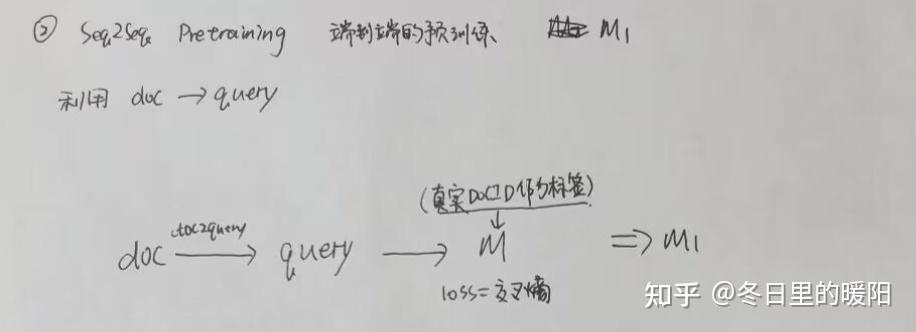 ② Seq2Seq Pretraining 端到端的预训练、 M1
利用 doc → query
(真实DOCID作为标签)
doc doc2query → query → M ⇒ M1
loss=交叉熵
知乎 @冬日里的暖阳